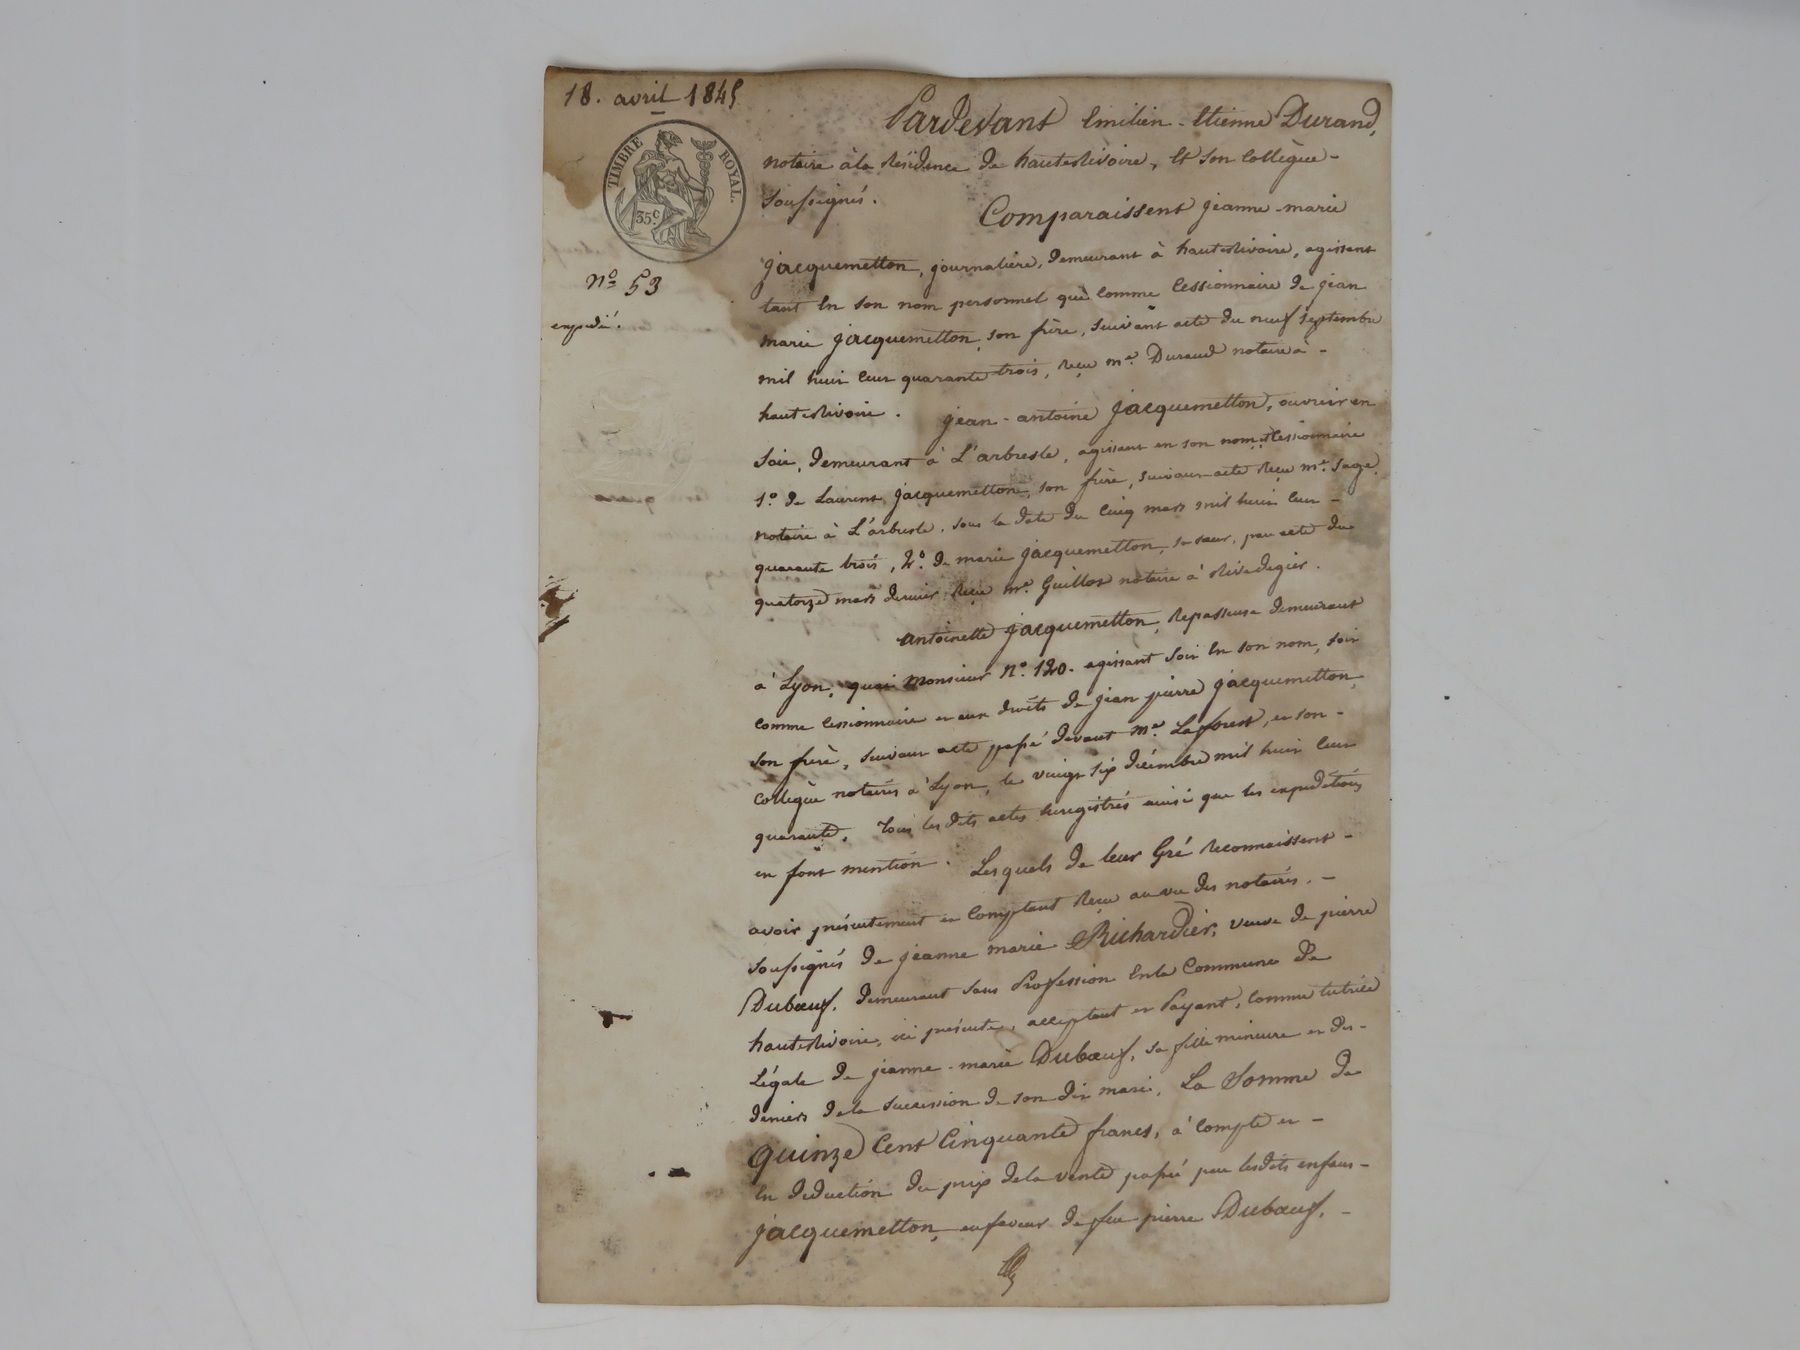 18. avril 1845
TIMBRE ROYAL.
35 c
n.o 53
expédié.
Pardevant Emilien-Etienne Durand,
notaire à la résidence de hauterivoire, et son collègue -
soussignés.
Comparaissent jeanne-marie
jacquemetton, journalière, demeurant à hauterivoire, agissant
tant en son nom personnel que comme cessionnaire de jean
marie jacquemetton, son frère, suivant acte du neuf septembre
mil huit cent quarante trois, reçu m.e Durand notaire à -
hauterivoire.
jean-antoine jacquemetton, ouvrier en
soie, demeurant à L'arbresle, agissant en son nom, cessionnaire
1.o de Laurent jacquemetton, son frère, suivant acte reçu m.e Sage,
notaire à L'arbresle, sous la date du cinq mars mil huit cent -
quarante trois, 2.o de marie jacquemetton, sa sœur, par acte du
quatorze mars dernier reçu m.e Guillot notaire à rivedegier.
antoinette jacquemetton, repasseuse demeurant
à Lyon, quai monsieur n.o 120. agissant soit en son nom, soit
comme cessionnaire et aux droits de jean pierre jacquemetton,
son frère, suivant acte passé devant m.e Laforest, et son -
collègue notaires à Lyon, le vingt six décembre mil huit cent
quarante. tous les dits actes enregistrés ainsi que les expéditions
en font mention. Lesquels de leur Gré reconnaissent -
avoir présentement et comptant reçu au vu des notaires. -
soussignés de jeanne marie Richardier, veuve de pierre
Dubœuf, demeurant sans Profession en la Commune de
hauterivoire, ici présente, acceptant et Payant, comme tutrice
Légale de jeanne-marie Dubœuf, sa fille mineure et des -
deniers de la succession de son dit mari, La Somme de
quinze Cent Cinquante francs, à compte et -
en déduction du prix de la vente passée par lesdits enfans -
jacquemetton, en faveur de feu pierre Dubœuf. -